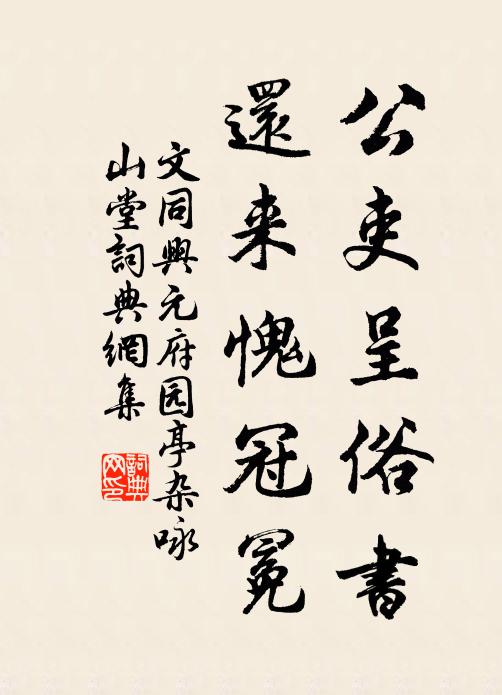 公吏呈俗書
還来愧冠冕
文同興元府园亭杂咏
山堂詞典網集
詞典
网印